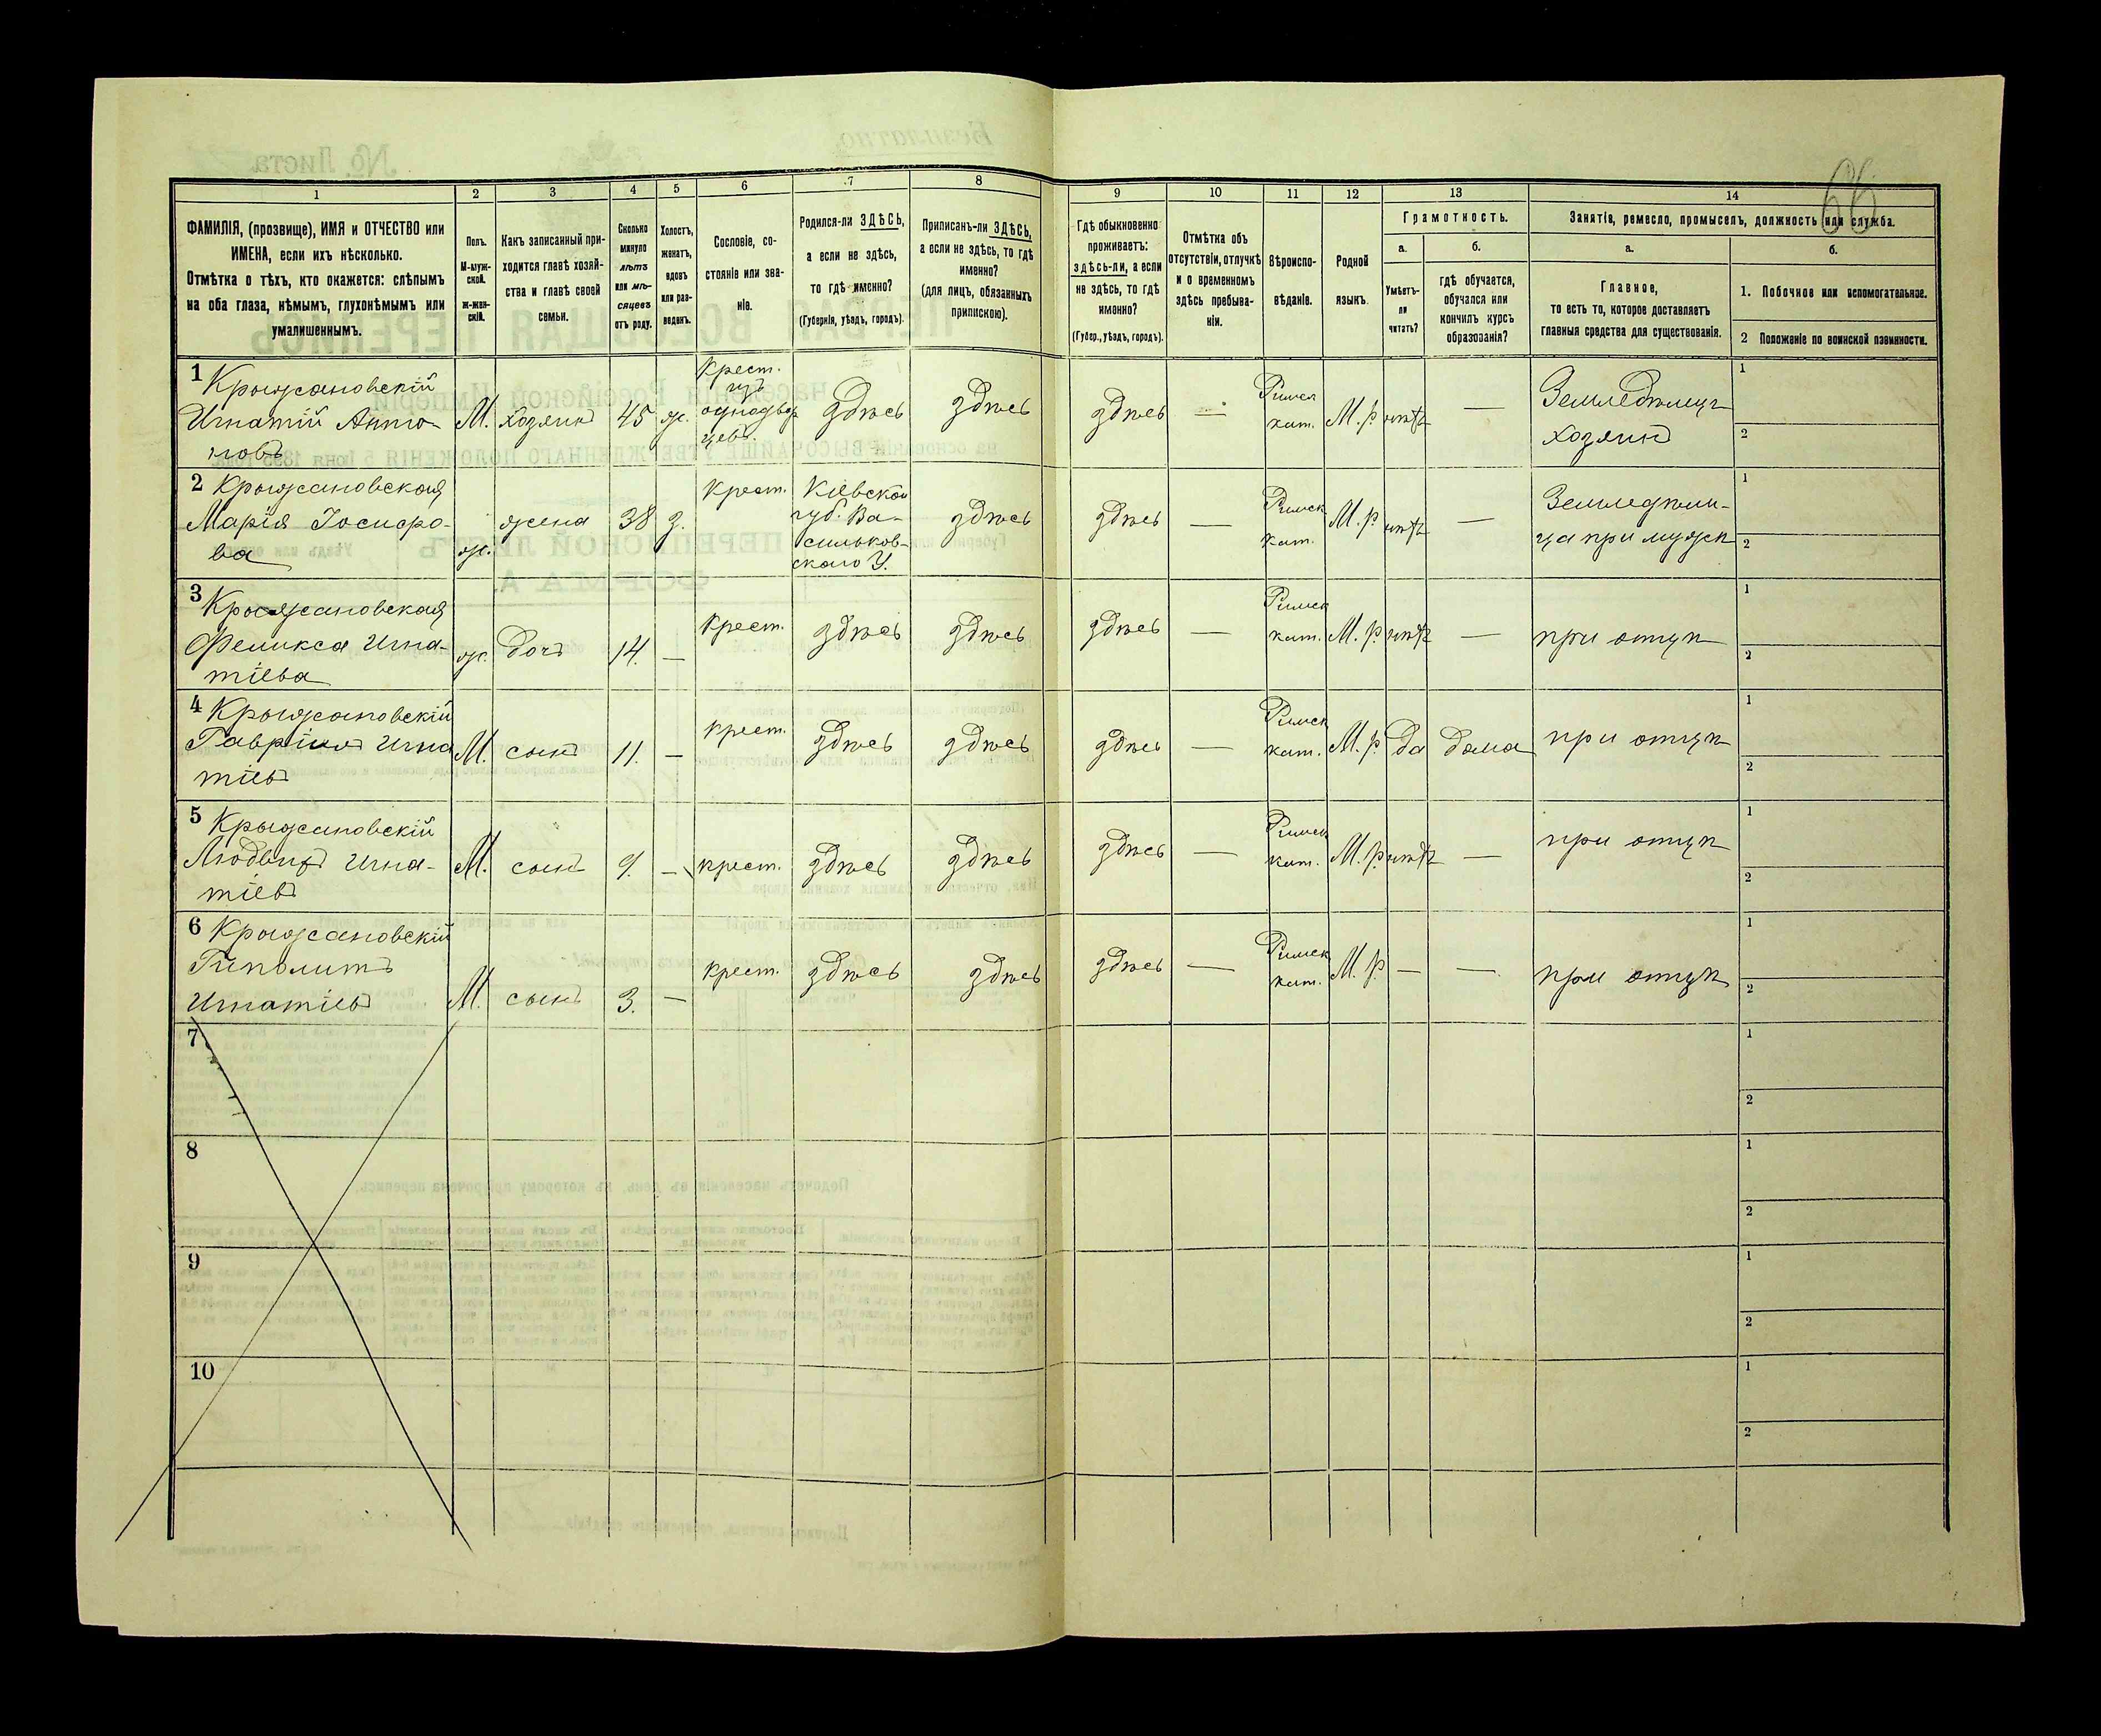 66
1 2 3 4 5 6 7 8 9 10 11 12 13 14
ФАМИЛІЯ, (прозвище), ИМЯ и ОТЧЕСТВО или
ИМЕНА, если ихъ нѣсколько.
Отмѣтка о тѣхъ, кто окажется: слѣпымъ
на оба глаза, нѣмымъ, глухонѣмымъ или
умалишеннымъ.
Полъ.
М-муж-
ской.
ж-жен-
скій.
Какъ записанный при-
ходится главѣ хозяй-
ства и главѣ своей
семьи.
Сколько
минуло
лѣтъ
или мѣ-
сяцевъ
отъ роду.
Холостъ,
женатъ,
вдовъ
или раз-
веденъ.
Сословіе, со-
стояніе или зва-
ніе.
Родился-ли ЗДѢСЬ,
а если не здѣсь,
то гдѣ именно?
(Губернія, уѣздъ, городъ).
Приписанъ-ли ЗДѢСЬ,
а если не здѣсь, то гдѣ
именно?
(для лицъ, обязанныхъ
припискою).
Гдѣ обыкновенно
проживаетъ:
здѣсь-ли, а если
не здѣсь, то гдѣ
именно?
(Губер., уѣздъ, городъ).
Отмѣтка объ
отсутствіи, отлучкѣ
и о временномъ
здѣсь пребыва-
ніи.
Вѣроиспо-
вѣданіе.
Родной
языкъ.
Грамотность.
а.
Умѣетъ-
ли
читать?
б.
гдѣ обучается,
обучался или
кончилъ курсъ
образованія?
Занятіе, ремесло, промыселъ, должность или служба.
а.
Главное,
то есть то, которое доставляетъ
главныя средства для существованія.
б.
1. Побочное или вспомогательное.
2 Положеніе по воинской повинности.
1 Крыжановскій
Игнатій Анто-
новъ
М. хозяинъ 45 ж.
Крест.
изъ
однодвор
цевъ.
здѣсь здѣсь здѣсь —
Римск
кат.
М. р. нѣтъ —
Земледѣлецъ
хозяинъ
1
2
2 Крыжановская
Марія Іосифо-
ва
ж. жена 38 з. крест.
Кіевской
губ. Ва-
сильков-
скаго У.
здѣсь здѣсь —
Римск
кат.
М. р. нѣтъ —
Земледѣли-
ца при мужѣ
1
2
3 Крыжановская
Феликса Игна-
тіева
ж. дочь 14. — крест. здѣсь здѣсь здѣсь —
Римск
кат.
М. р. нѣтъ — при отцѣ
1
2
4 Крыжановскій
Гавріилъ Игна
тіевъ
М. сынъ 11. — крест. здѣсь здѣсь здѣсь —
Римск
кат.
М. р. да дома при отцѣ
1
2
5 Крыжановскій
Людвигъ Игна-
тіевъ
М. сынъ 9. — крест. здѣсь здѣсь здѣсь —
Римск
кат.
М. р. нѣтъ — при отцѣ
1
2
6 Крыжановскій
Гиполитъ
Игнатіевъ
М. сынъ 3. — крест. здѣсь здѣсь здѣсь —
Римск
кат.
М. р. — — при отцѣ
1
2
7
1
2
8
1
2
9
1
2
10
1
2